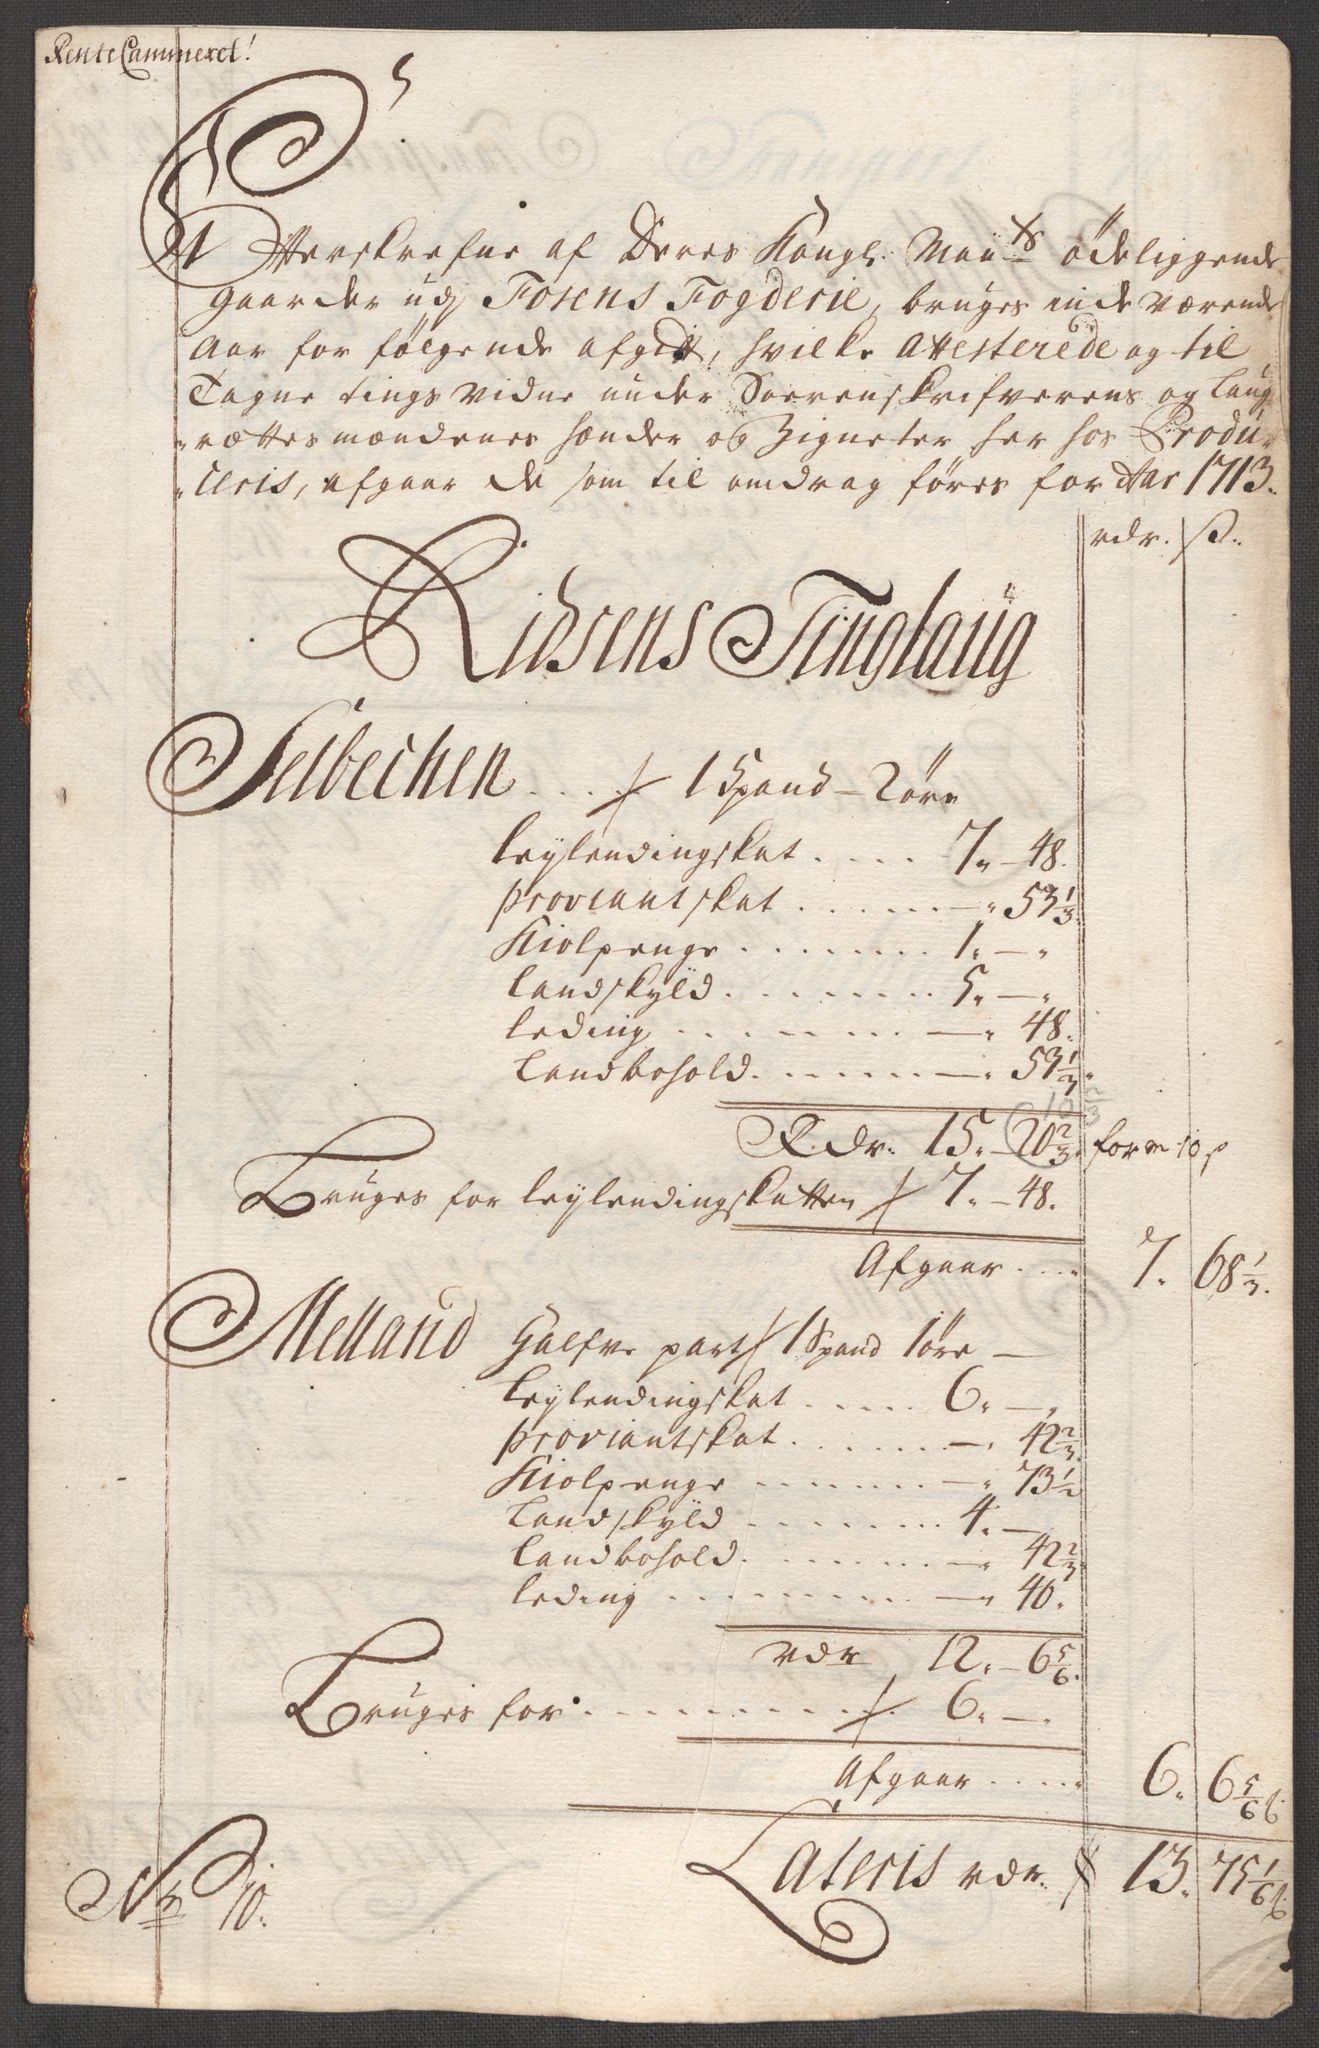 RenteCammeret!
Efterskrefne af Deres Kongl. May.ts ödeliggende
gaarder udj Fosens Fogderie, bruges inde værende
Aar for følgende afgift, hvilke Attesterede og til
Tagne tings vidne under Soerenskrifverens og laug
"rættes mændenes hænder og Zigneter her hos Produ-
"ceris, afgaar de som til omdrag føres for Aar 1713.
rdr. ß.
Ridsens Tinglaug
Selbechen ... / 1 Spand – 2 öre
leylendingskat .... 7" – 48.
proviantskat ...... – " 53 1/3.
Kiolpenge ....... 1" – "
landskyld ........ 5" – "
leding ........ – " 48.
landbohold ....... – " 53 1/3.
10 2/3
R.dr. 15" – 20 2/3. for m 10 ß
Bruges for leylendingskatten / 7" – 48.
Afgaar .... 7" 68 1/3.
Melland halfve part / 1 Spand 1 öre –
leylendingskat ..... 6" – "
proviantskat ....... – " 42 2/3.
Kiolpenge ........ – " 73 1/2
landskyld ........ 4" – "
landbohold ........ – " 42 2/3.
leding ........ – " 40.
rdr 12" – 6 5/6.
Bruges for ........ / 6" – "
Afgaar ..... 6" 6 5/6 ß.
Lateris rdr. / 13" 75 1/6 ß.
No 10.